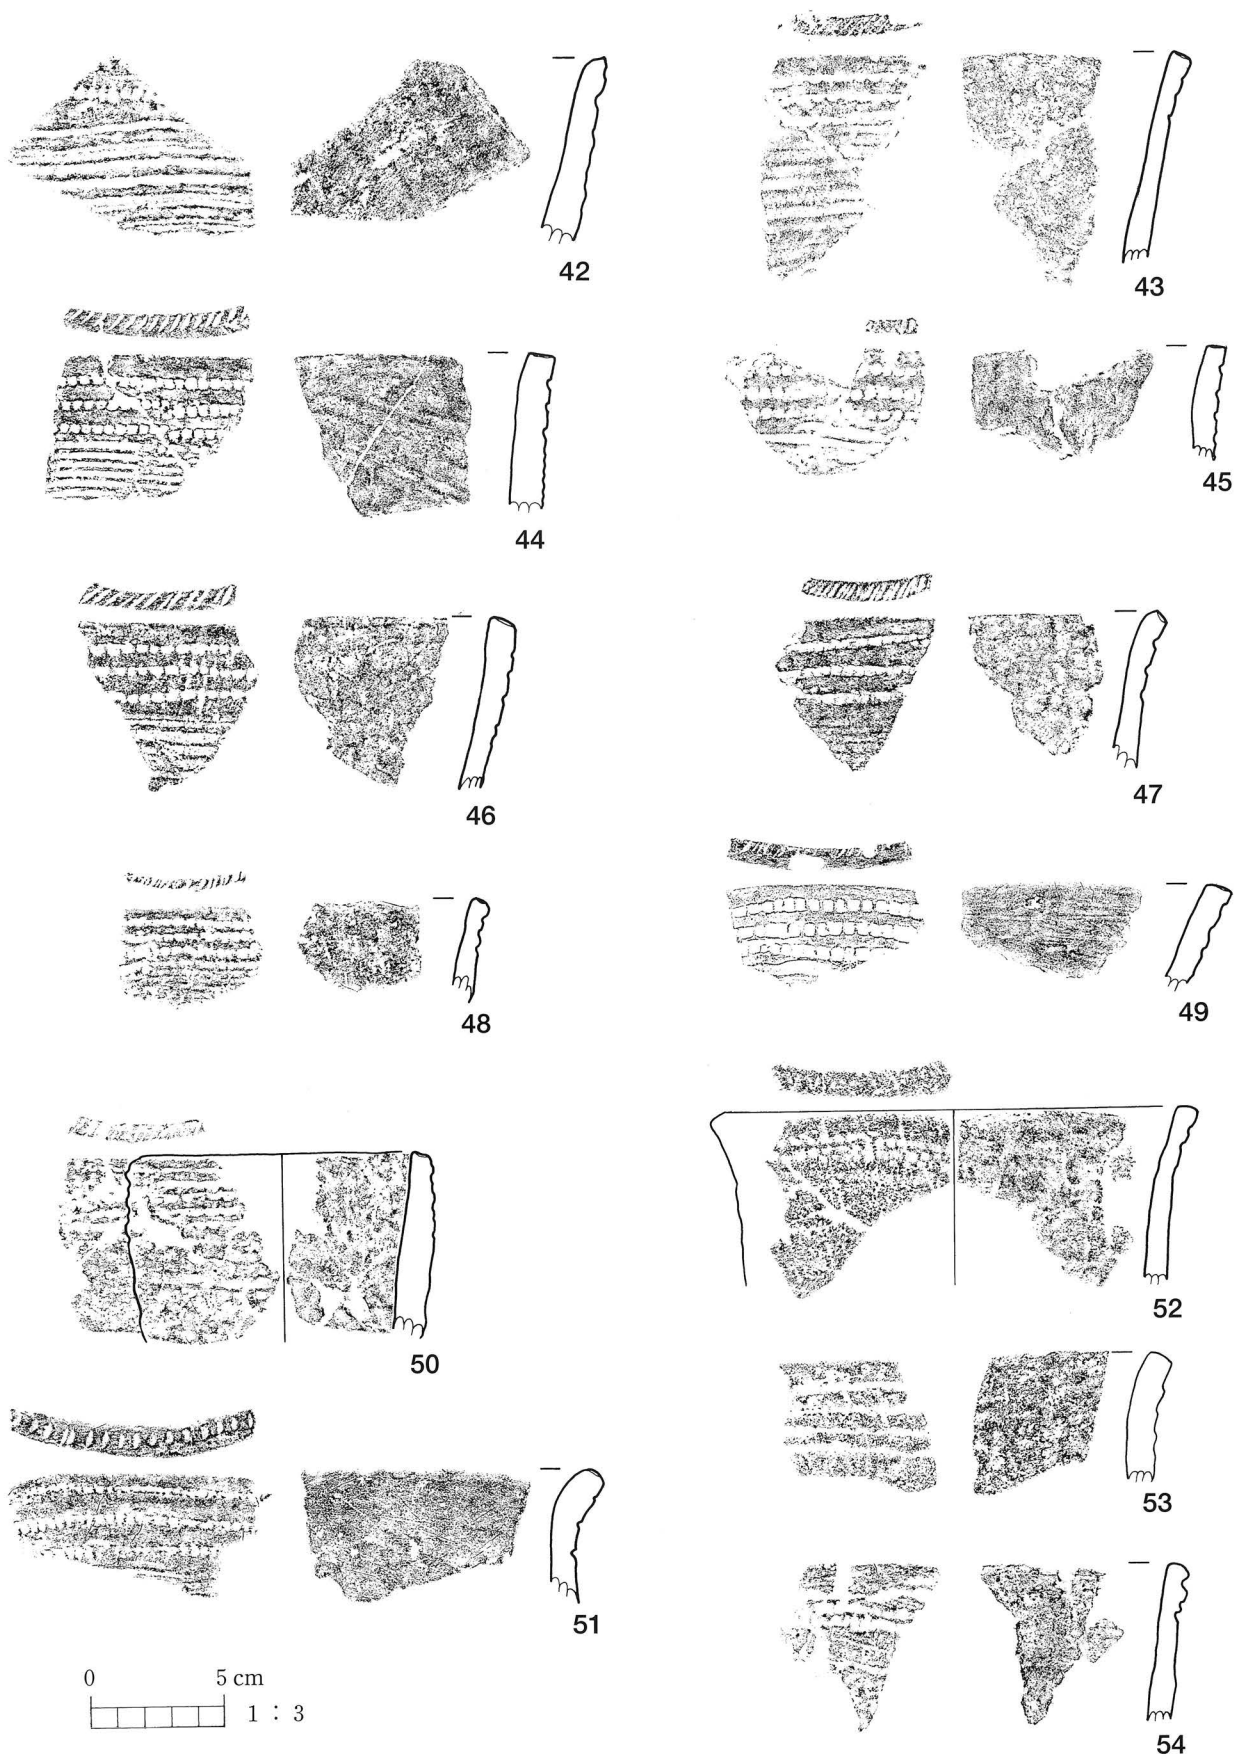 42
43
44
45
46
47
48
49
50
52
51
53
54
0 5 cm
1 : 3